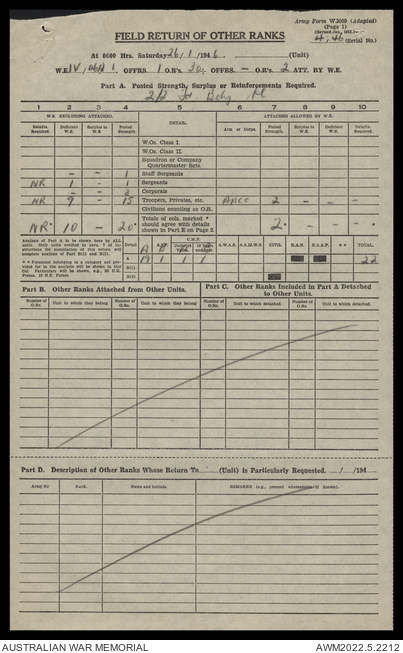 Army Form W.3009 (Adapted)
(Page 1)
(Revised Jan., 1943.)
4/46 (Serial No.)
FIELD RETURN OF OTHER RANKS
At 0600 Hrs. Saturday 26/1/1946 (Unit)
W.E. OFFRS. 1 O.R's. 30. OFFRS. — O.R's. 2 ATT. BY W.E.
Part A. Posted Strength, Surplus or Reinforcements Required.
1 2 3 4 5 6 7 8 9 10
W.E. EXCLUDING ATTACHED. ATTACHED ALLOWED BY W.E.
Details Required. Deficient W.E. Surplus to W.E. Posted Strength. DETAIL. Arm or Corps. Posted Strength. Surplus to W.E. Deficient W.E. Details Required.
W.Os. Class I.
W.Os. Class II.
Squadron or Company Quartermaster Sgts.
— — 1 Staff Sergeants
NR 1 — 1 Sergeants
— — 3 Corporals
NR 9 — 15 Troopers, Privates, etc. AASC 2 — —
Civilians counting as O.R.
NR* 10 — 20* Totals of cols. marked * should agree with details shown in Part E on Page 2. 2* — —
Analysis of Part A to be shown here by ALL units. Only units notified in para. 7 of instructions for completion of this return will complete analysis of Part B(i) and B(ii).
Detail C.M.F. A.W.A.S. A.A.M.W.S. CIVIL. R.A.N. R.A.A.F. * * TOTAL.
A 19 1 1 1 22
B(i)
B(ii)
Part B. Other Ranks Attached from Other Units.
Part C. Other Ranks Included in Part A Detached to Other Units.
Number of O.Rs. Unit to which they belong Number of O.Rs. Unit to which they belong Number of O.Rs. Unit to which detached. Number of O.Rs. Unit to which detached.
Part D. Description of Other Ranks Whose Return To (Unit) is Particularly Requested. / /194
Army No Rank. Name and Initials. REMARKS (e.g., present whereabouts if known).
AUSTRALIAN WAR MEMORIAL AWM2022.5.2212